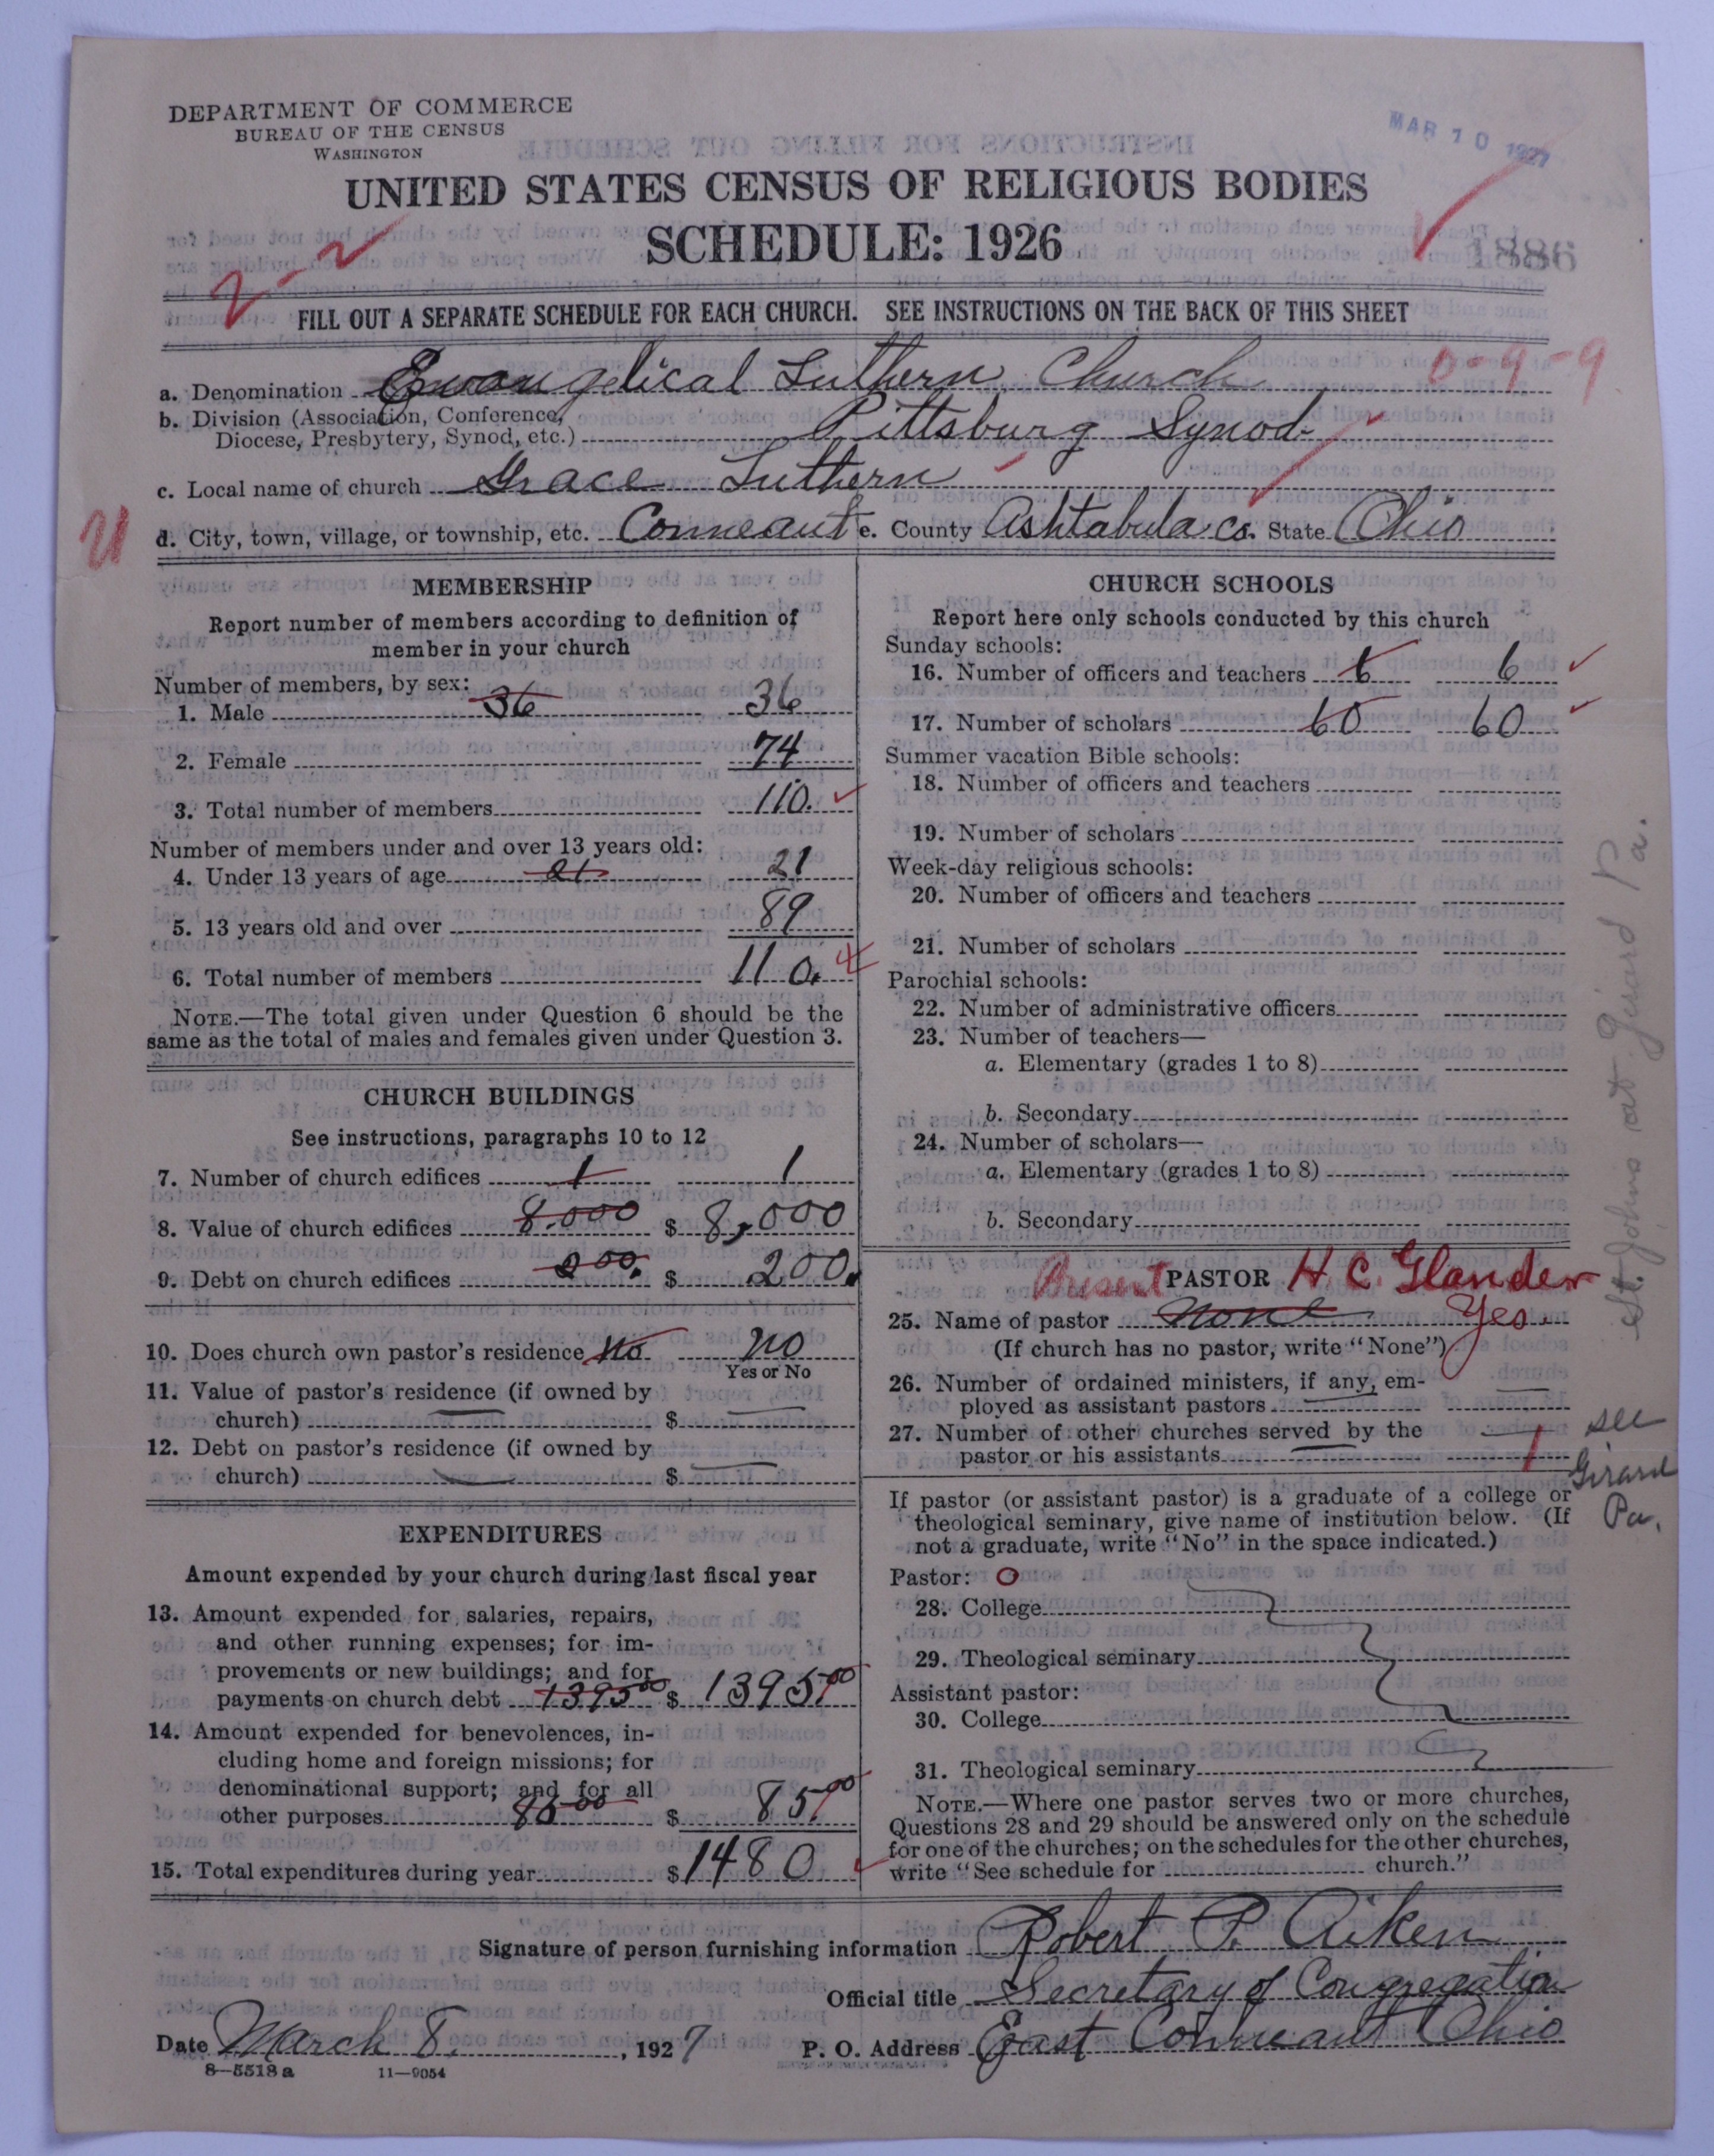 DEPARTMENT OF COMMERCE
BUREAU OF THE CENSUS
WASHINGTON
MAR 10 1927
UNITED STATES CENSUS OF RELIGIOUS BODIES
SCHEDULE: 1926
1886
2-2
FILL OUT A SEPARATE SCHEDULE FOR EACH CHURCH. SEE INSTRUCTIONS ON THE BACK OF THIS SHEET
0-9-9
a. Denomination Evangelical Luthern Church
b. Division (Association, Conference,
Diocese, Presbytery, Synod, etc.) Pittsburg Synod.
c. Local name of church Grace Luthern
d. City, town, village, or township, etc. Conneaut e. County Ashtabula Co. State Ohio
MEMBERSHIP
Report number of members according to definition of
member in your church
Number of members, by sex:
1. Male 36 36
2. Female 74
3. Total number of members 110.
Number of members under and over 13 years old:
4. Under 13 years of age 21 21
5. 13 years old and over 89
6. Total number of members 110.
NOTE.—The total given under Question 6 should be the
same as the total of males and females given under Question 3.
CHURCH BUILDINGS
See instructions, paragraphs 10 to 12
7. Number of church edifices 1 1
8. Value of church edifices 8.000 $ 8,000
9. Debt on church edifices 200. $ 200.
10. Does church own pastor's residence No No
Yes or No
11. Value of pastor's residence (if owned by
church) $
12. Debt on pastor's residence (if owned by
church) $
EXPENDITURES
Amount expended by your church during last fiscal year
13. Amount expended for salaries, repairs,
and other running expenses; for im-
provements or new buildings; and for
payments on church debt 1395 00 $ 1395 00
14. Amount expended for benevolences, in-
cluding home and foreign missions; for
denominational support; and for all
other purposes 85 00 $ 85 00
15. Total expenditures during year $ 1480
CHURCH SCHOOLS
Report here only schools conducted by this church
Sunday schools:
16. Number of officers and teachers 6 6
17. Number of scholars 60 60
Summer vacation Bible schools:
18. Number of officers and teachers
19. Number of scholars
Week-day religious schools:
20. Number of officers and teachers
21. Number of scholars
Parochial schools:
22. Number of administrative officers
23. Number of teachers—
a. Elementary (grades 1 to 8)
b. Secondary
24. Number of scholars—
a. Elementary (grades 1 to 8)
b. Secondary
Present PASTOR H. C. Glander
25. Name of pastor None Yes.
(If church has no pastor, write "None")
26. Number of ordained ministers, if any, em-
ployed as assistant pastors
27. Number of other churches served by the
pastor or his assistants 1
see
Girard
Pa.
St. Johns at Girard Pa.
If pastor (or assistant pastor) is a graduate of a college or
theological seminary, give name of institution below. (If
not a graduate, write "No" in the space indicated.)
Pastor: O
28. College
29. Theological seminary
Assistant pastor:
30. College
31. Theological seminary
NOTE.—Where one pastor serves two or more churches,
Questions 28 and 29 should be answered only on the schedule
for one of the churches; on the schedules for the other churches,
write "See schedule for church."
Signature of person furnishing information Robert P. Aiken
Official title Secretary of Congregation
Date March 8. , 1927 P. O. Address East Conneaut Ohio
8—5518a 11—9054